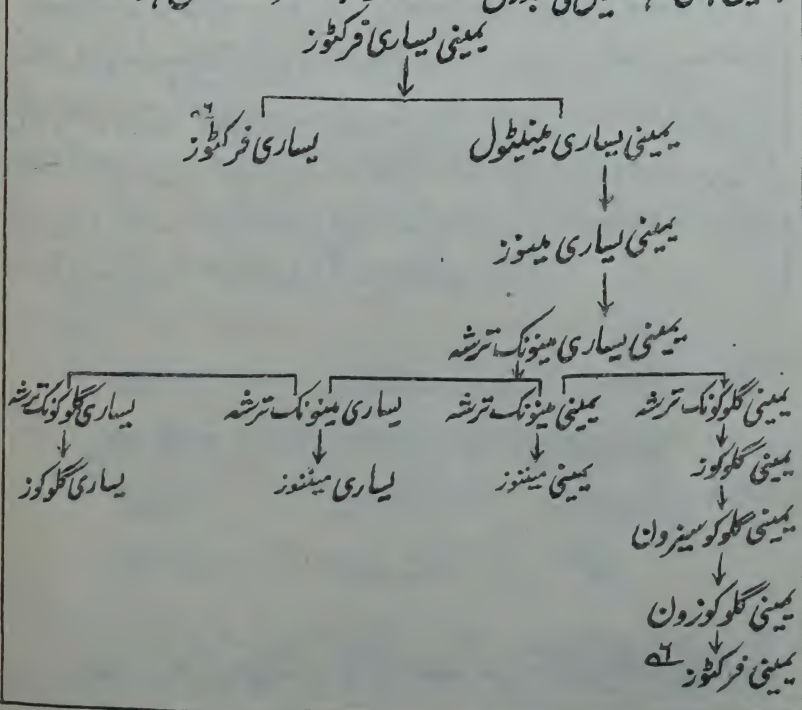 یمینی یساری فرکٹوز
یمینی یساری مینیٹول یساری فرکٹوز
یمینی یساری مینوز
یمینی یساری مینونک ترشہ
یمینی گلوکونک ترشہ یمینی مینونک ترشہ یساری مینونک ترشہ یساری گلوکونک ترشہ
یمینی گلوکوز یمینی میننوز یساری میننوز یساری گلوکوز
یمینی گلوکوسیزون
یمینی گلوکوزون
یمینی فرکٹوز